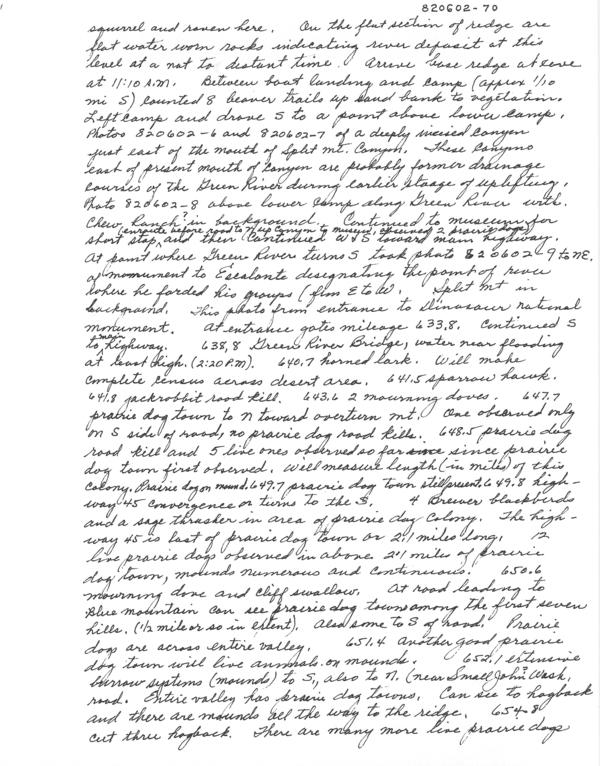 820602-70
squirrel and raven here. On the flat section of ridge are
flat water worn rocks indicating river deposit at this
level at a not to distant time. Arrive base ridge at
at 11:10 A.M. Between boat landing and camp (approx 1/10
mi S) counted 8 beaver trails up sand bank to vegetation.
Left camp and drove S to a point above lower camp.
Photos 820602-6 and 820602-7 of a deeply incised canyon
just east of the mouth of Split Mt. Canyon. These canyons
east of present mouth of canyon are probably former drainage
courses of the Green River during earlier stages of uplifting.
Photo 820602-8 above lower camp along Green River with
Chew Ranch? in background. Continued to museum for
(enroute before road to N up canyon to museum, observed 2 prairie dogs)
short stop, and then continued W & S toward main highway.
At point where Green River turns S took photo 820602-9 to NE.
of monument to Escalante designating the point of river
where he forded his groups (from E to W). Split mt in
background. This photo from entrance to Dinosaur national
monument. At entrance gates mileage 633.8. Continued S
to main highway. 638.8 Green River Bridge, water near flooding
at least high. (2:20 P.M). 640.7 horned lark. Will make
complete census across desert area. 641.5 sparrow hawk.
641.8 jackrobbit road kill. 643.6 2 mourning doves. 647.7
prairie dog town to N toward overturn mt. One observed only
on S side of road, no prairie dog road kills. 648.5 prairie dog
road kill and 5 live ones observed so far since since prairie
dog town first observed. Will measure length (in miles) of this
colony. Prairie dog on mound. 649.7 prairie dog town still present. 649.8 high-
way 45 convergence or turns to the S. 4 Brewer blackbirds
and a sage thrasher in area of prairie dog colony. The high-
way 45 is last of prairie dog town or 2.1 miles long. 12
live prairie dogs observed in above 2.1 miles of prairie
dog town, mounds numerous and continuous. 650.6
mourning dove and cliff swallow. At road leading to
Blue mountain can see prairie dog towns among the first seven
hills. (1/2 mile or so in extent). Also some to S of road. Prairie
dogs are across entire valley. 651.4 another good prairie
dog town will live animals on mounds. 652.1 extensive
burrow systems (mounds) to S, also to N. (near Small John? Wash,
road. Entire valley has prairie dog towns. Can see to hogback
and there are mounds all the way to the ridge. 654.8
cut thru hogback. There are many more live prairie dogs